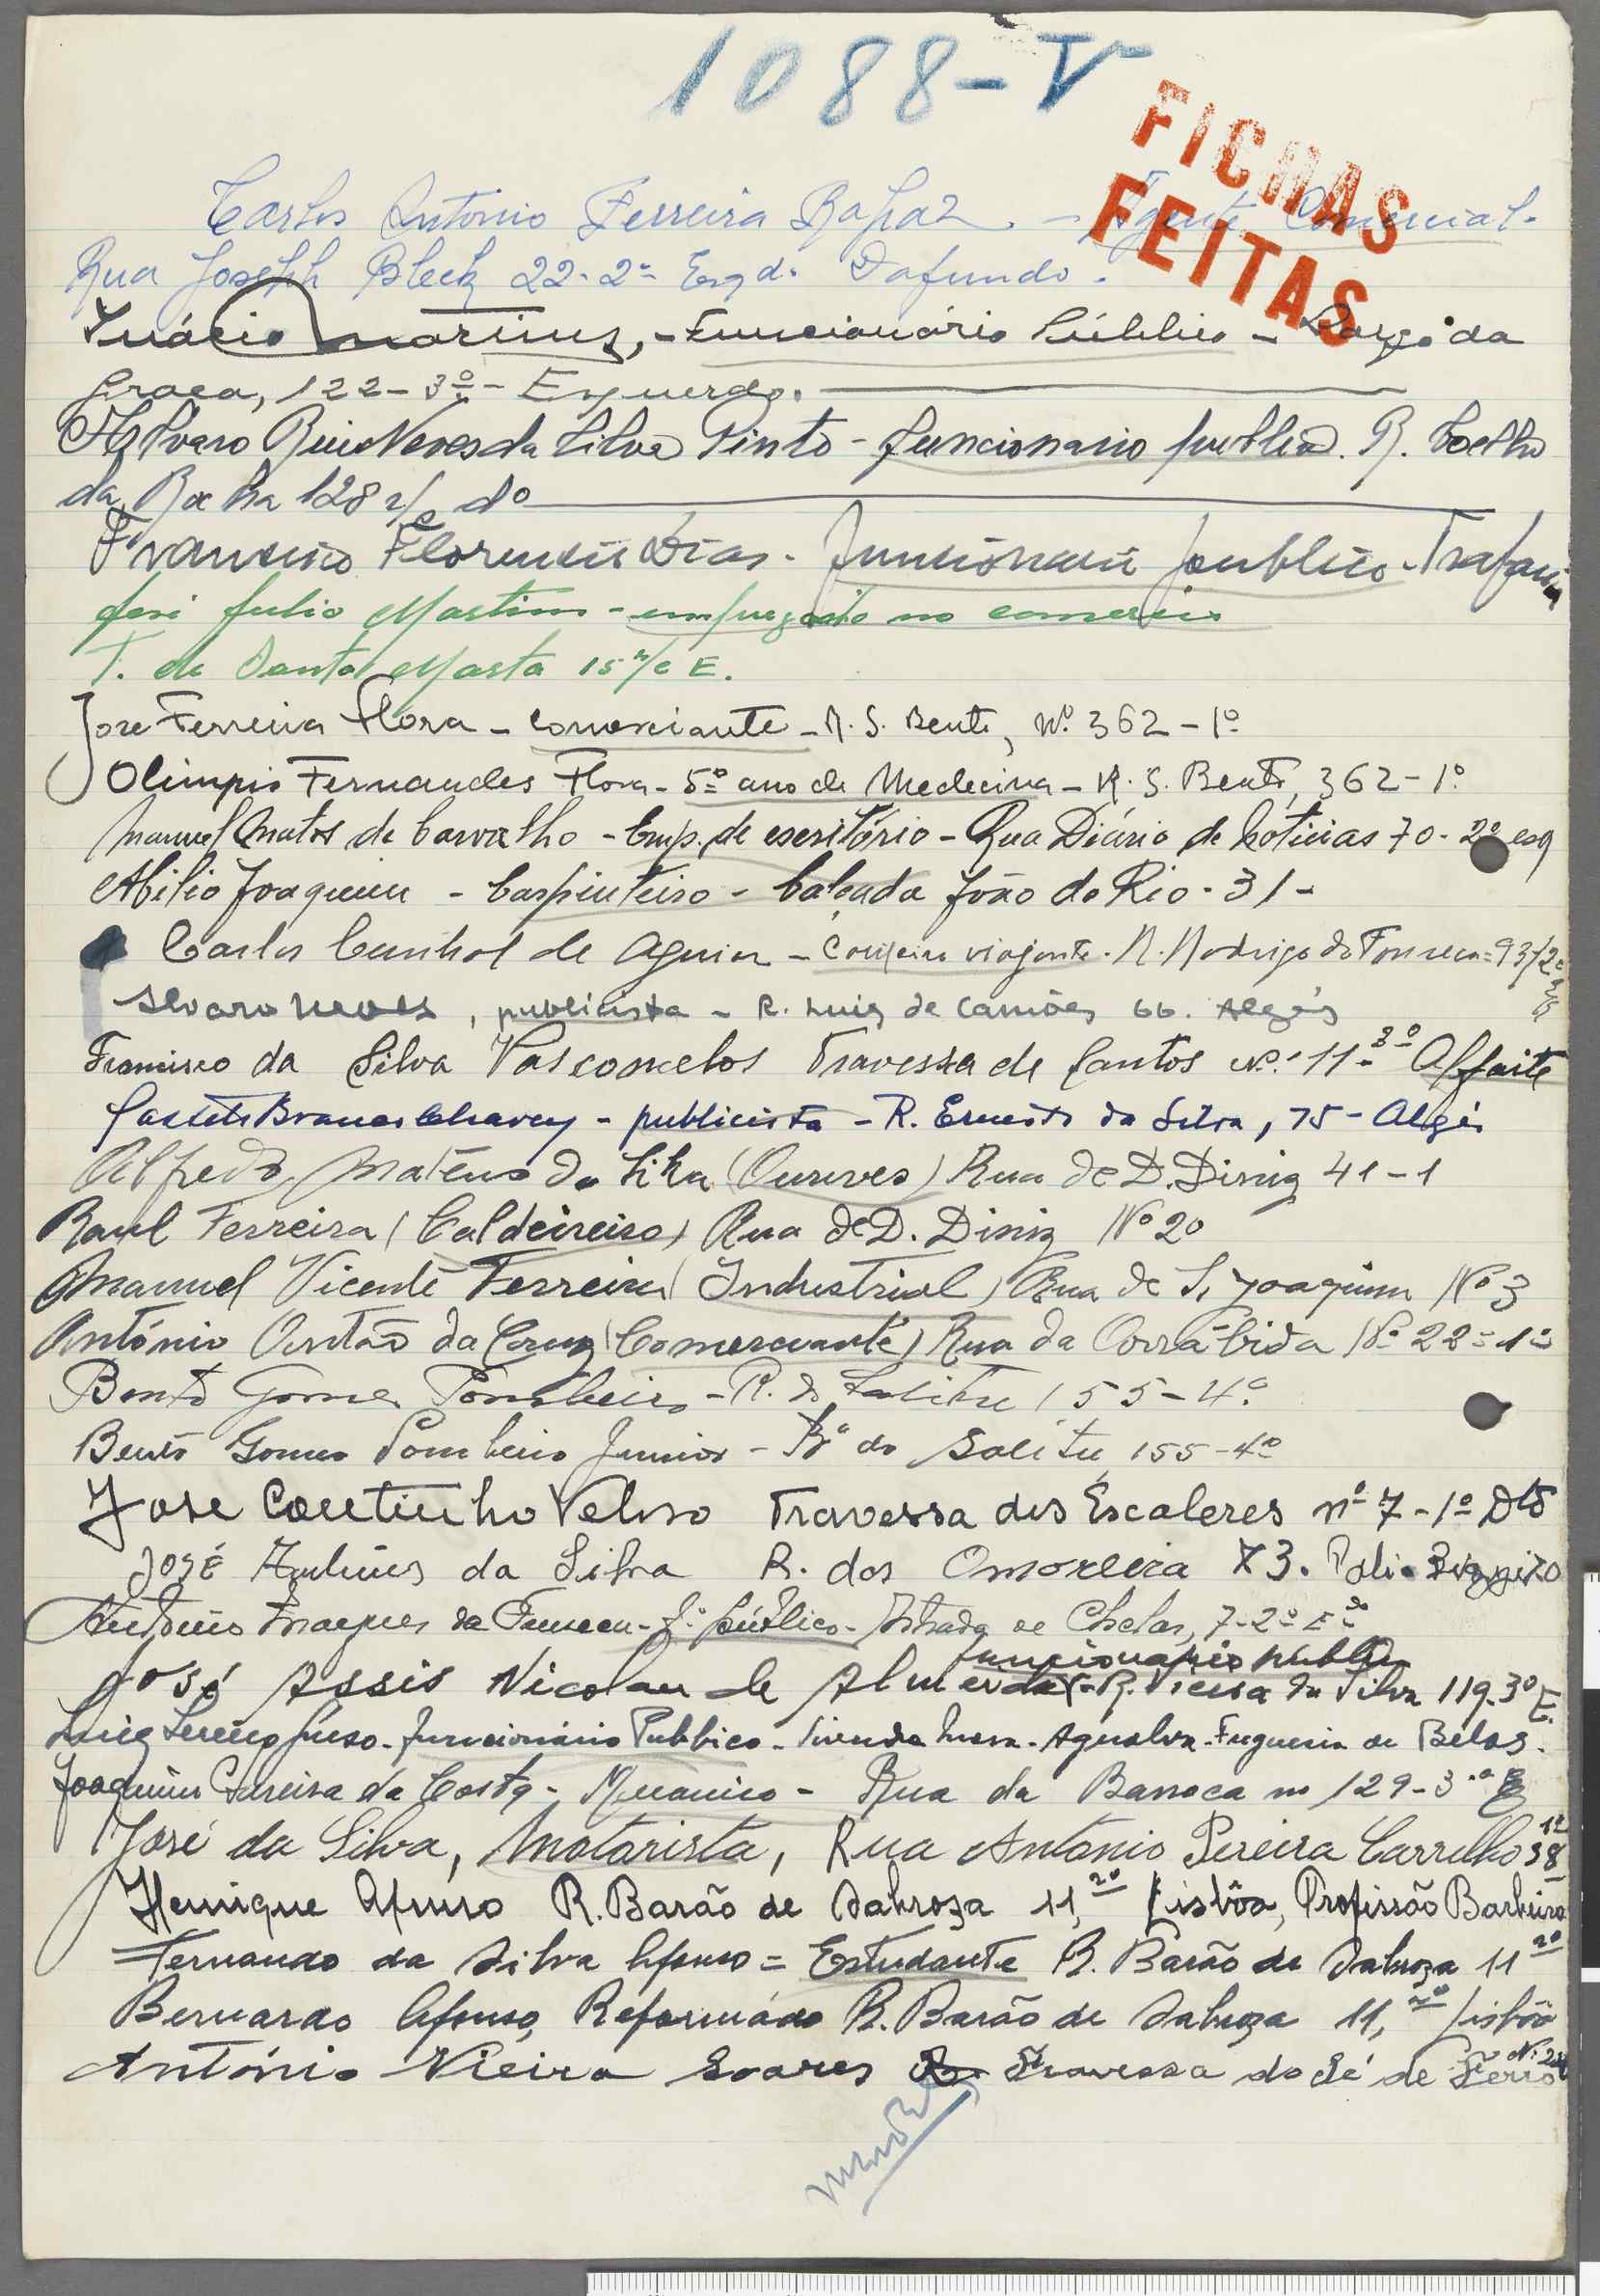 1088-V
FICHAS
FEITAS
Carlos Antonio Ferreira Rapaz. - Agente Comercial.
Rua Joseph Bleck 22-2º Esqd. Dafundo.
Inácio Martins, - Funcionário Público - Largo da
Graça, 122-3º- Esquerdo.
Alvaro Rui Neves da Silva Pinto - funcionario publico. R. Coelho
da Rocha 128 r/c dº
Francisco Florencio Dias - funcionario publico - Trafaria
José Julio Martins - empregado no comercio
T. de Santa Marta 15 r/c E.
José Ferreira Flora - comerciante - R. S. Bento, nº 362-1º
Olimpio Fernandes Flora - 5º ano de Medecina - R. S. Bento, 362-1º
Manuel Matos de Carvalho - Emp. de escritório - Rua Diário de Noticias 70-2º esq
Abilio Joaquim - Carpinteiro - Calçada João do Rio - 31 -
Carlos Cunhal de Aguiar - Caixeiro viajante. R. Rodrigo da Fonseca = 93/2º
Alvaro Neves, publicista - R. Luiz de Camões 66. Algés
Francisco da Silva Vasconcelos Travessa de Santos nº 11-3º Alfaite
Castelo Branco Chaves - publicista - R. Ernesto da Silva, 75 - Algés
Alfredo Mateus da Silva (Ourives) Rua de D. Diniz 41-1
Raul Ferreira (Caldeireiro) Rua de D. Diniz Nº 20
Manuel Vicente Ferreira (Industrial) Rua de S. Joaquim Nº 3
António Antão da Cruz (Comerciante) Rua da Arrábida Nº 22=1º
Bento Gomes Pombeiro - R. do Salitre 155-4º
Bento Gomes Pombeiro Junior - Rª do Salitre 155-4º
Jose Coutinho Veloso Travessa dos Escaleres nº 7-1º Dtº
JOSÉ Antunes da Silva R. das Amoreira 73.
António Marques da Fonseca - Fº público - Estrada de Chelas, 7-2º Edº
funcionario publico
José Assis Nicolau de Almeida - R. Vieira da Silva 119-3º E.
Luiz Lereno - funcionário Publico - Vivenda - Agualva - Freguesia de Belas.
Joaquim Pereira da Costa - Mecanico - Rua da Barroca nº 129-3º E
José da Silva, Motorista, Rua António Pereira Carrilho 38 1º
Henrique Afonso R. Barão de Sabroza 11, 2º Lisbôa, Profissão Barbeiro
Fernando da Silva Afonso = Estudante R. Barão de Sabroza 11 2º
Bernardo Afonso, Reformado R. Barão de Sabroza 11, 2º Lisbôa
António Vieira Soares Travessa do Zé de